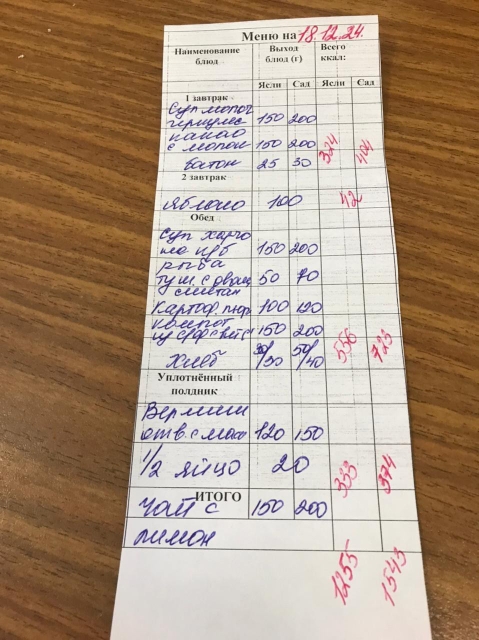 Меню на 18.12.24.
Наименование блюд Выход блюд (г) Всего ккал:
Ясли Сад Ясли Сад
1 завтрак
Суп молоч
геркулес 150 200
какао
с молок 150 200 324
батон 25 30
2 завтрак
яблоко 100 42
Обед
Суп харчо
150 200
рыба
туш. с овощ 50 70
сметан
Картоф. пюре 100 120
компот
150 200
хлеб 30/30 50/40 556 723
Уплотнённый полдник
Вермиш
отв. с мас 120 150
1/2 яйцо 20 333 374
ИТОГО
чай с 150 200
лимон
1255 1543